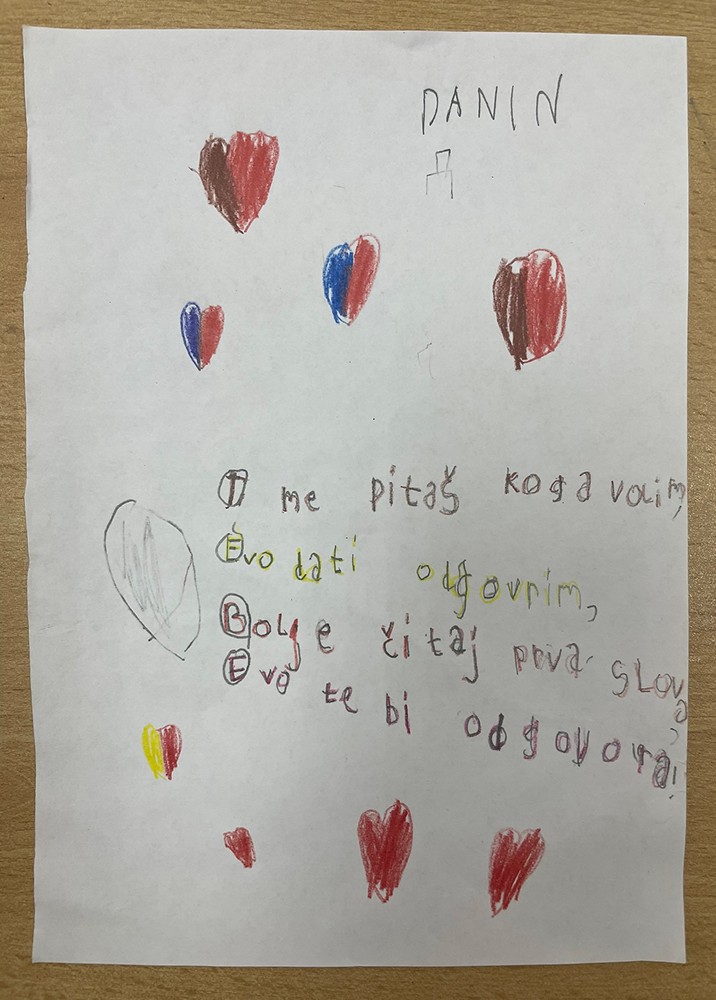 DANIN
T me pitaš koga volim,
Evo dati odgovrim,
Bolje čitaj prva slova,
Evo te bi odgovora!